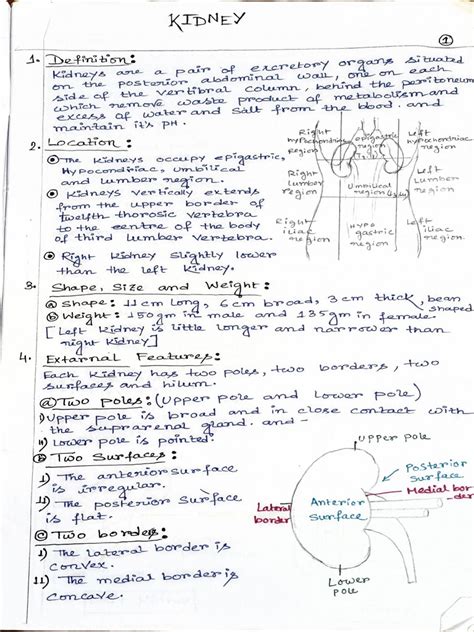 KIDNEY
①
1. Definition:
Kidneys are a pair of excretory organs situated
on the posterior abdominal wall, one on each
side of the vertibral column, behind the peritoneum
which remove waste product of metabolism and
excess of water and salt from the blood. and
maintain it's pH.
2. Location:
The kidneys occupy epigastric,
Hypocondriac, Umbilical
and lumber region.
Kidneys vertically extends
from the upper border of
twelfth thorosic vertebra
to the centre of the body
of third lumber vertebra.
Right kidney slightly lower
than the left kidney.
Right
Hypochondriac
region
epigastric
region
Left
Hypochondriac
region
Right
Lumber
region
Umbilical
region
Left
Lumber
region
Right
iliac
region
Hypo
gastric
region
Left
iliac
region
3. Shape, Size and Weight:
ⓐ Shape: 11cm long, 6cm broad, 3cm thick, bean
shaped
ⓑ Weight: 150gm in male and 135gm in female.
[Left kidney is little longer and narrower than
right kidney]
4. Extarnal Features:
Each kidney has two poles, two borders, two
surfaces and hilum.
ⓐ Two poles: (Upper pole and Lower pole)
i) Upper pole is broad and in close contact with
the suprarenal gland. and -
ii) Lower pole is pointed.
ⓑ Two Surfaces:
i) The anterior surface
is irregular.
ii) The posterior surface
is flat.
ⓒ Two borders:
i) The lateral border is
convex.
ii) The medial border is
concave.
Upper pole
Posterior
surface
Medial bor-
der
Lateral
border
Anterior
Surface
Lower
pole